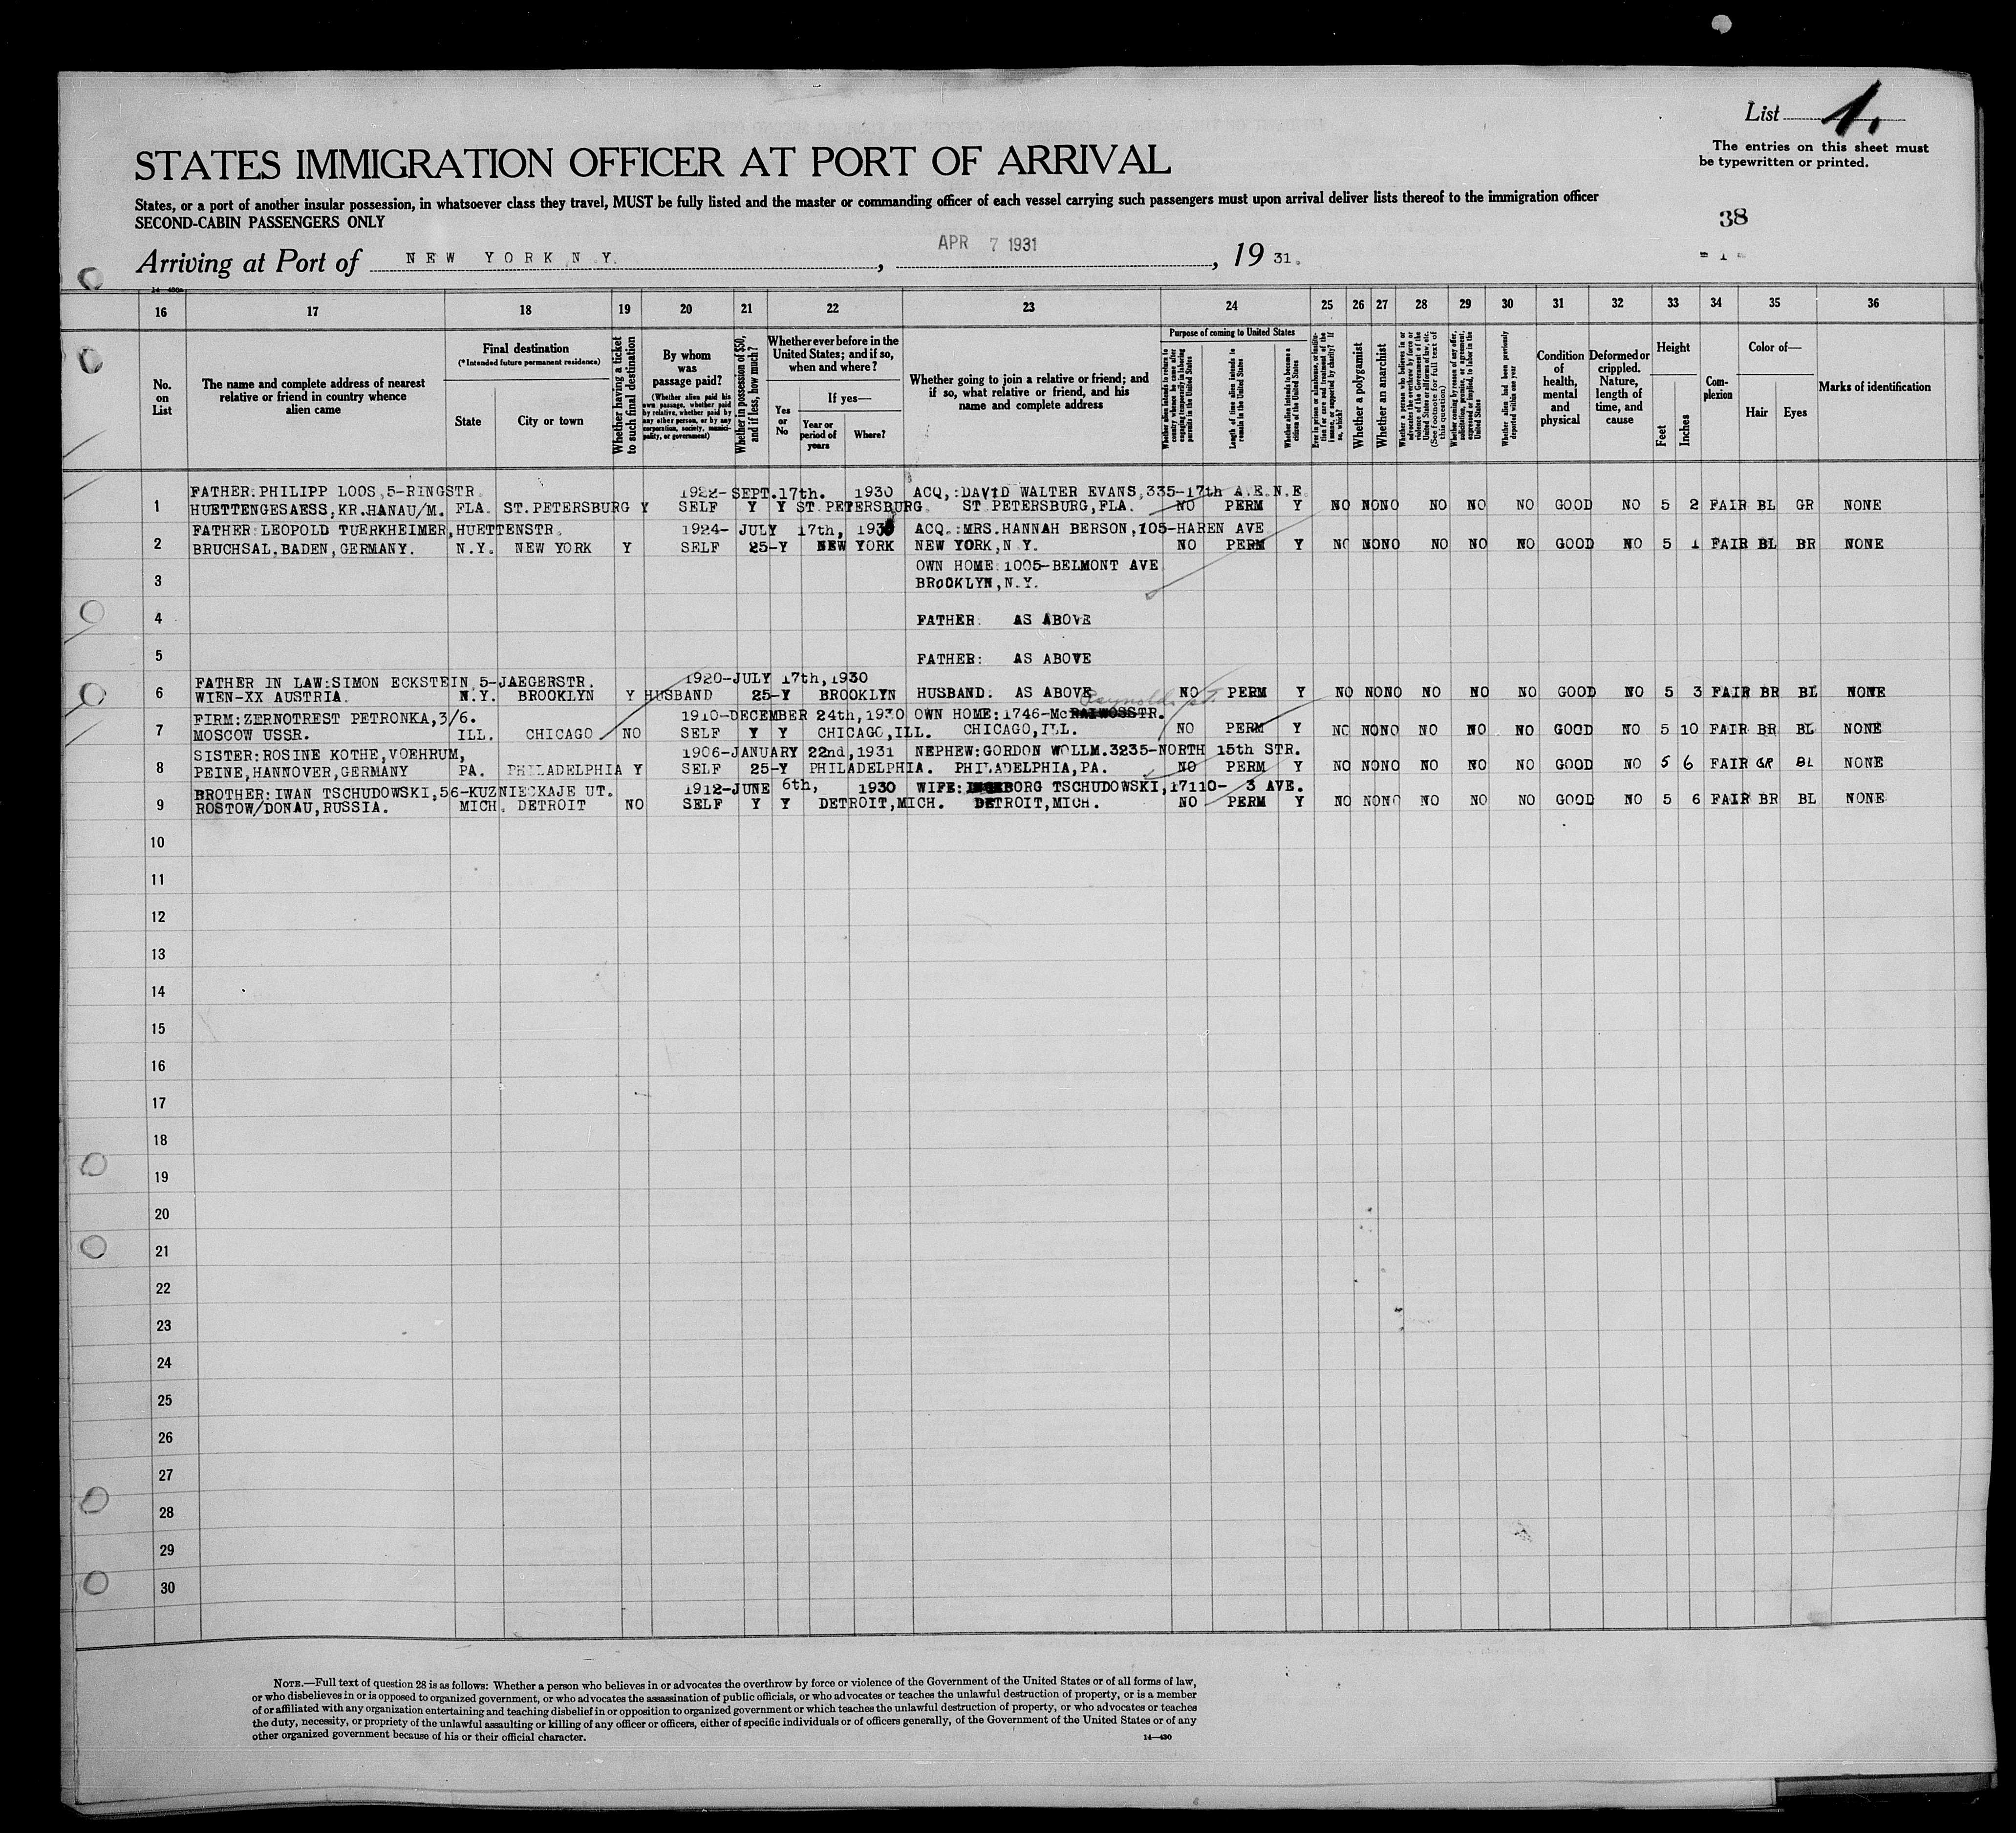 List 1.
The entries on this sheet must
be typewritten or printed.
STATES IMMIGRATION OFFICER AT PORT OF ARRIVAL
States, or a port of another insular possession, in whatsoever class they travel, MUST be fully listed and the master or commanding officer of each vessel carrying such passengers must upon arrival deliver lists thereof to the immigration officer
SECOND-CABIN PASSENGERS ONLY
38
Arriving at Port of NEW YORK N Y. , APR 7 1931 , 19 31.
- 1 -
14-430a
16 17 18 19 20 21 22 23 24 25 26 27 28 29 30 31 32 33 34 35 36
No. on List
The name and complete address of nearest relative or friend in country whence alien came
Final destination
(*Intended future permanent residence)
State
City or town
Whether having a ticket to such final destination
By whom was passage paid?
(Whether alien paid his own passage, whether paid by relative, whether paid by any other person, or by any corporation, society, municipality, or government)
Whether in possession of $50, and if less, how much?
Whether ever before in the United States; and if so, when and where?
Yes or No
If yes—
Year or period of years
Where?
Whether going to join a relative or friend; and if so, what relative or friend, and his name and complete address
Purpose of coming to United States
Whether alien intends to return to country whence he came after engaging temporarily in laboring pursuits in the United States
Length of time alien intends to remain in the United States
Whether alien intends to become a citizen of the United States
Ever in prison or almshouse, or institution for care and treatment of the insane, or supported by charity? If so, which?
Whether a polygamist
Whether an anarchist
Whether a person who believes in or advocates the overthrow by force or violence of the Government of the United States or all forms of law, etc. (See footnote for full text of this question)
Whether coming by reason of any offer, solicitation, promise, or agreement, expressed or implied, to labor in the United States
Whether alien had been previously deported within one year
Condition of health, mental and physical
Deformed or crippled. Nature, length of time, and cause
Height
Feet
Inches
Complexion
Color of—
Hair
Eyes
Marks of identification
FATHER:PHILIPP LOOS,5-RINGSTR. 1922-SEPT.17th. 1930 ACQ,:DAVID WALTER EVANS,335-17th A.E.N.E.
1 HUETTENGESAESS,KR.HANAU/M. FLA. ST.PETERSBURG Y SELF Y Y ST.PETERSBURG. ST PETERSBURG,FLA. NO PERM Y NO NO NO NO NO NO GOOD NO 5 2 FAIR BL GR NONE
FATHER:LEOPOLD TUERKHEIMER,HUETTENSTR. 1924- JULY 17th, 1930 ACQ.:MRS.HANNAH BERSON,105-HAREN AVE
2 BRUCHSAL.BADEN,GERMANY. N.Y. NEW YORK Y SELF 25-Y NEW YORK NEW YORK,N.Y. NO PERM Y NO NO NO NO NO NO GOOD NO 5 1 FAIR BL BR NONE
OWN HOME:1005-BELMONT AVE
3 BROOKLYN,N.Y.
4 FATHER: AS ABOVE
5 FATHER: AS ABOVE
FATHER IN LAW:SIMON ECKSTEIN,5-JAEGERSTR. 1920-JULY 17th,1930
6 WIEN-XX AUSTRIA. N.Y. BROOKLYN Y HUSBAND 25-Y BROOKLYN HUSBAND. AS ABOVE NO PERM Y NO NO NO NO NO NO GOOD NO 5 3 FAIR BR BL NONE
Reynolds st.
FIRM:ZERNOTREST PETRONKA,3/6. 1910-DECEMBER 24th,1930 OWN HOME:1746-Mc
7 MOSCOW USSR. ILL. CHICAGO NO SELF Y Y CHICAGO,ILL. CHICAGO,ILL. NO PERM Y NO NO NO NO NO NO GOOD NO 5 10 FAIR BR BL NONE
SISTER:ROSINE KOTHE,VOEHRUM, 1906-JANUARY 22nd,1931 NEPHEW:GORDON WOLLM.3235-NORTH 15th STR.
8 PEINE,HANNOVER,GERMANY PA. PHILADELPHIA Y SELF 25-Y PHILADELPHIA. PHILADELPHIA,PA. NO PERM Y NO NO NO NO NO NO GOOD NO 5 6 FAIR GR BL NONE
BROTHER:IWAN TSCHUDOWSKI,56-KUZNIECKAJE UT. 1912-JUNE 6th, 1930 WIFE:INGEBORG TSCHUDOWSKI,17110- 3 AVE.
9 ROSTOW/DONAU,RUSSIA. MICH. DETROIT NO SELF Y Y DETROIT,MICH. DETROIT,MICH. NO PERM Y NO NO NO NO NO NO GOOD NO 5 6 FAIR BR BL NONE
10
11
12
13
14
15
16
17
18
19
20
21
22
23
24
25
26
27
28
29
30
NOTE.—Full text of question 28 is as follows: Whether a person who believes in or advocates the overthrow by force or violence of the Government of the United States or of all forms of law,
or who disbelieves in or is opposed to organized government, or who advocates the assassination of public officials, or who advocates or teaches the unlawful destruction of property, or is a member
of or affiliated with any organization entertaining and teaching disbelief in or opposition to organized government or which teaches the unlawful destruction of property, or who advocates or teaches
the duty, necessity, or propriety of the unlawful assaulting or killing of any officer or officers, either of specific individuals or of officers generally, of the Government of the United States or of any
other organized government because of his or their official character.
14—430